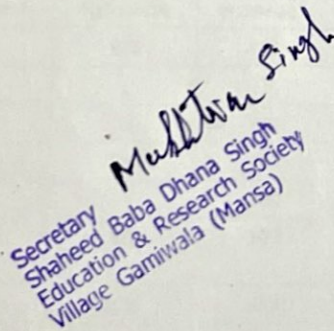 Mukhtiar Singh
Secretary
Shaheed Baba Dhana Singh
Education & Research Society
Village Gamiwala (Mansa)